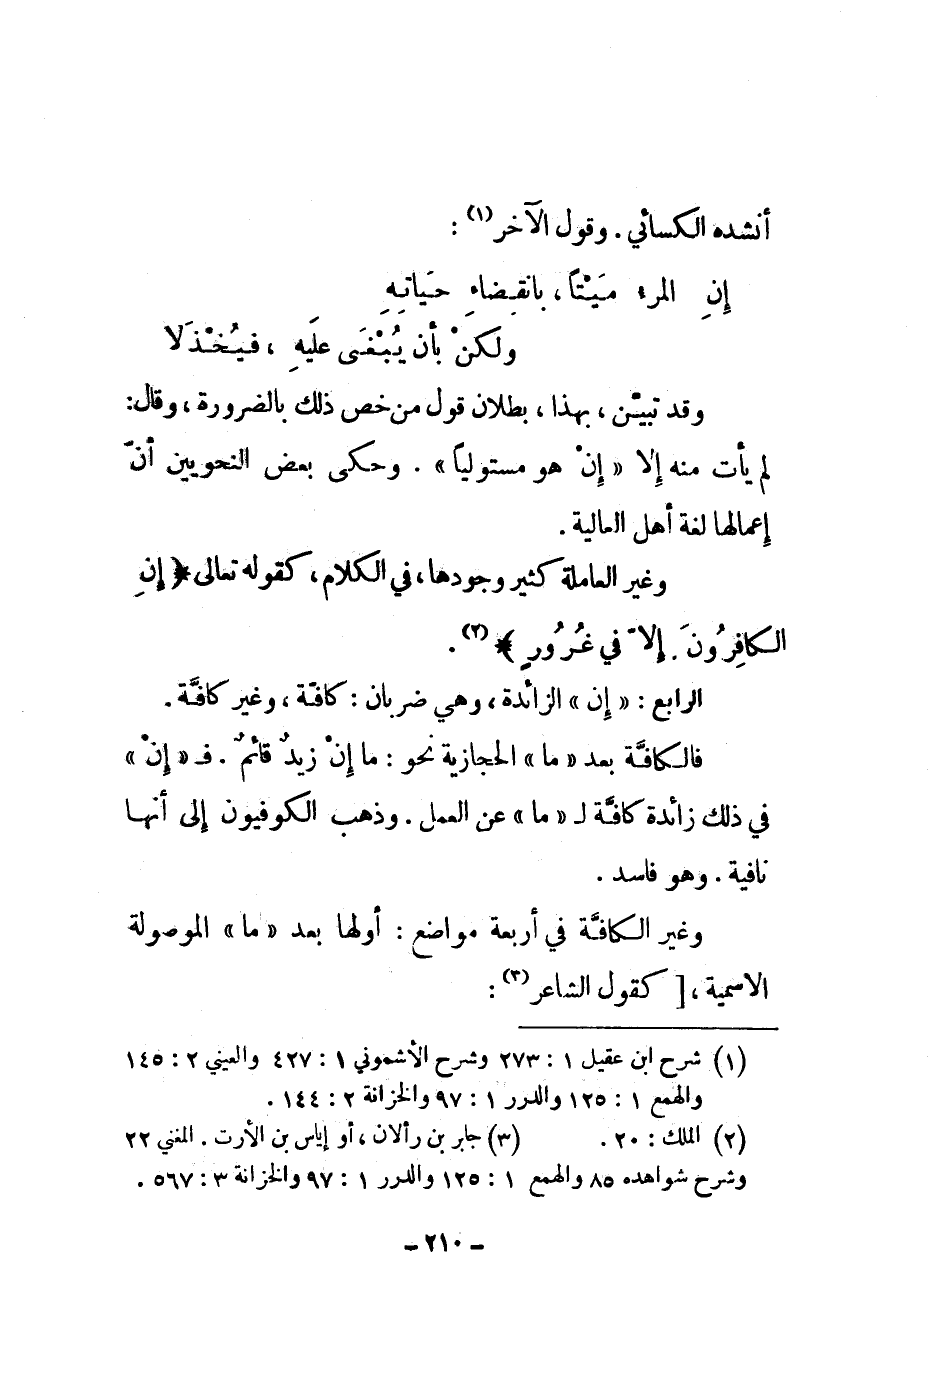 أنشده الكسائي. وقول الآخر(١):
إنِ المرءُ مَيْتاً، بانقِضاءِ حَياتِهِ
ولكنْ بأن يُبْغَى عليهِ، فيُخْذَلا
وقد تبيّن، بهذا، بطلان قول من خص ذلك بالضرورة، وقال:
لم يأت منه إلا « إنْ هو مستولياً ». وحكى بعض النحويين أنّ
إعمالها لغة أهل العالية.
وغير العاملة كثير وجودها، في الكلام، كقوله تعالى ﴿ إنِ
الكافِرُونَ إلاّ في غُرُورٍ ﴾(٢).
الرابع: « إن » الزائدة، وهي ضربان: كافّة، وغير كافَّة.
فالكافَّة بعد « ما » الحجازية نحو: ما إنْ زيدٌ قائمٌ. فـ « إنْ »
في ذلك زائدة كافَّة لـ « ما » عن العمل. وذهب الكوفيون إلى أنها
نافية. وهو فاسد.
وغير الكافَّة في أربعة مواضع: أولها بعد « ما » الموصولة
الاسمية، [ كقول الشاعر(٣):
(١) شرح ابن عقيل ١: ٢٧٣ وشرح الأشموني ١: ٤٢٧ والعيني ٢: ١٤٥
والهمع ١: ١٢٥ والدرر ١: ٩٧ والخزانة ٢: ١٤٤.
(٢) الملك: ٢٠. (٣) جابر بن رألان، أو إياس بن الأرت. المغني ٢٢
وشرح شواهده ٨٥ والهمع ١: ١٢٥ والدرر ١: ٩٧ والخزانة ٣: ٥٦٧.
- ٢١٠ -